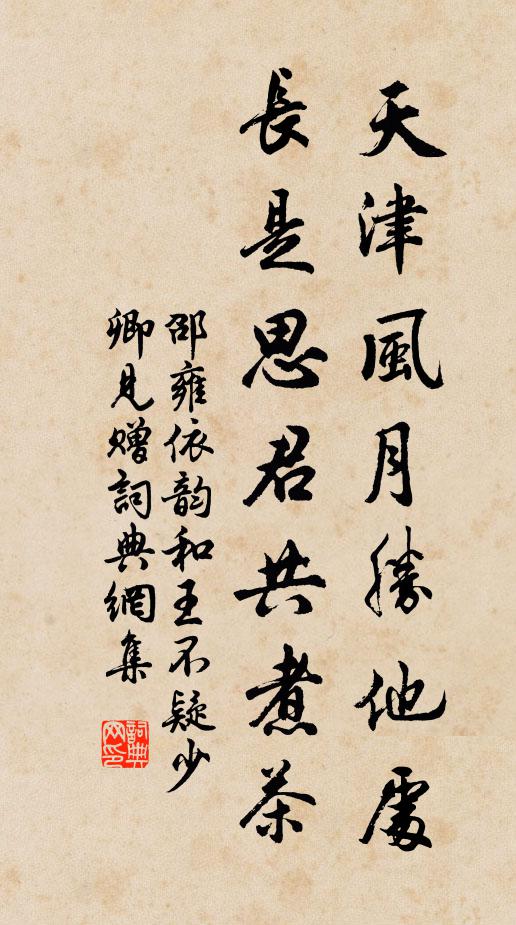 天津風月勝他處
長是思君共煮茶
邵雍依韵和王不疑少
卿見贈詞典網集
詞典网印